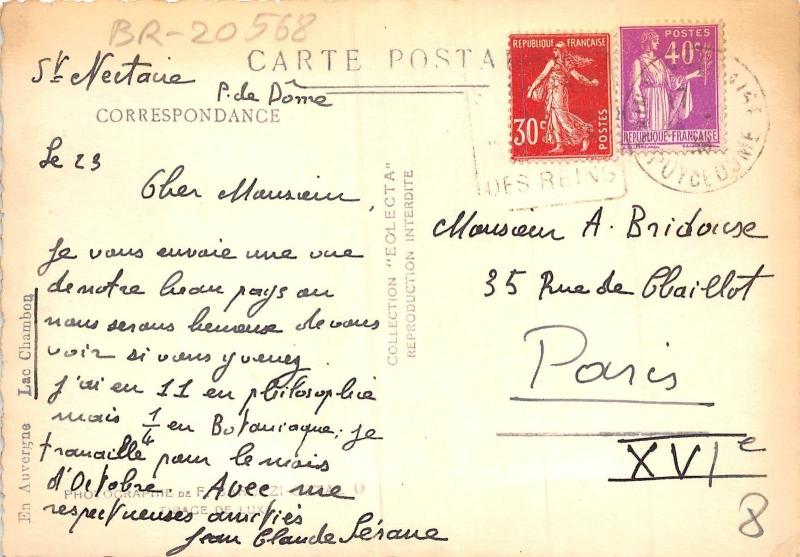 BR-20568
CARTE POSTA
St Nectaire
P. de Dôme
CORRESPONDANCE
Le 23
Cher Monsieur,
Je vous envoie une vue
de notre beau pays ou
nous serons heureuse de vous
voir si vous y venez
J'ai eu 11 en philosophie
mais 1/4 en Botanique; je
travaille pour le mois
d'Octobre. Avec me
respectueuses amitiés
Jean Claude Sérane
En Auvergne Lac Chambon
PHOTOGRAPHIE DE F.
TIRAGE DE LUXE
COLLECTION "EGLECTA"
REPRODUCTION INTERDITE
REPUBLIQUE FRANÇAISE
30c
POSTES
POSTES
40c
REPUBLIQUE FRANÇAISE
DES REINS
PUY DE DOME
Monsieur A. Bridouse
35 Rue de Chaillot
Paris
XVIe
8